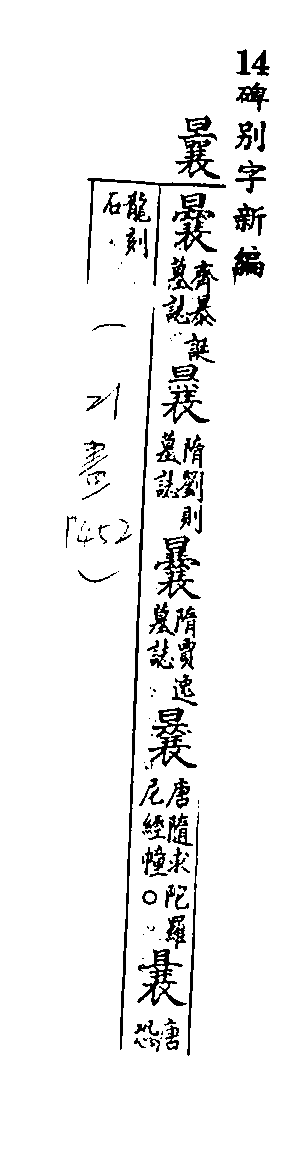 14碑別字新編
曩
曩齊暴誕墓誌曩隋劉則墓誌曩隋賈逸墓誌曩唐隨求陀羅尼經幢。曩唐恐
龍刻石
(21畫 P452)